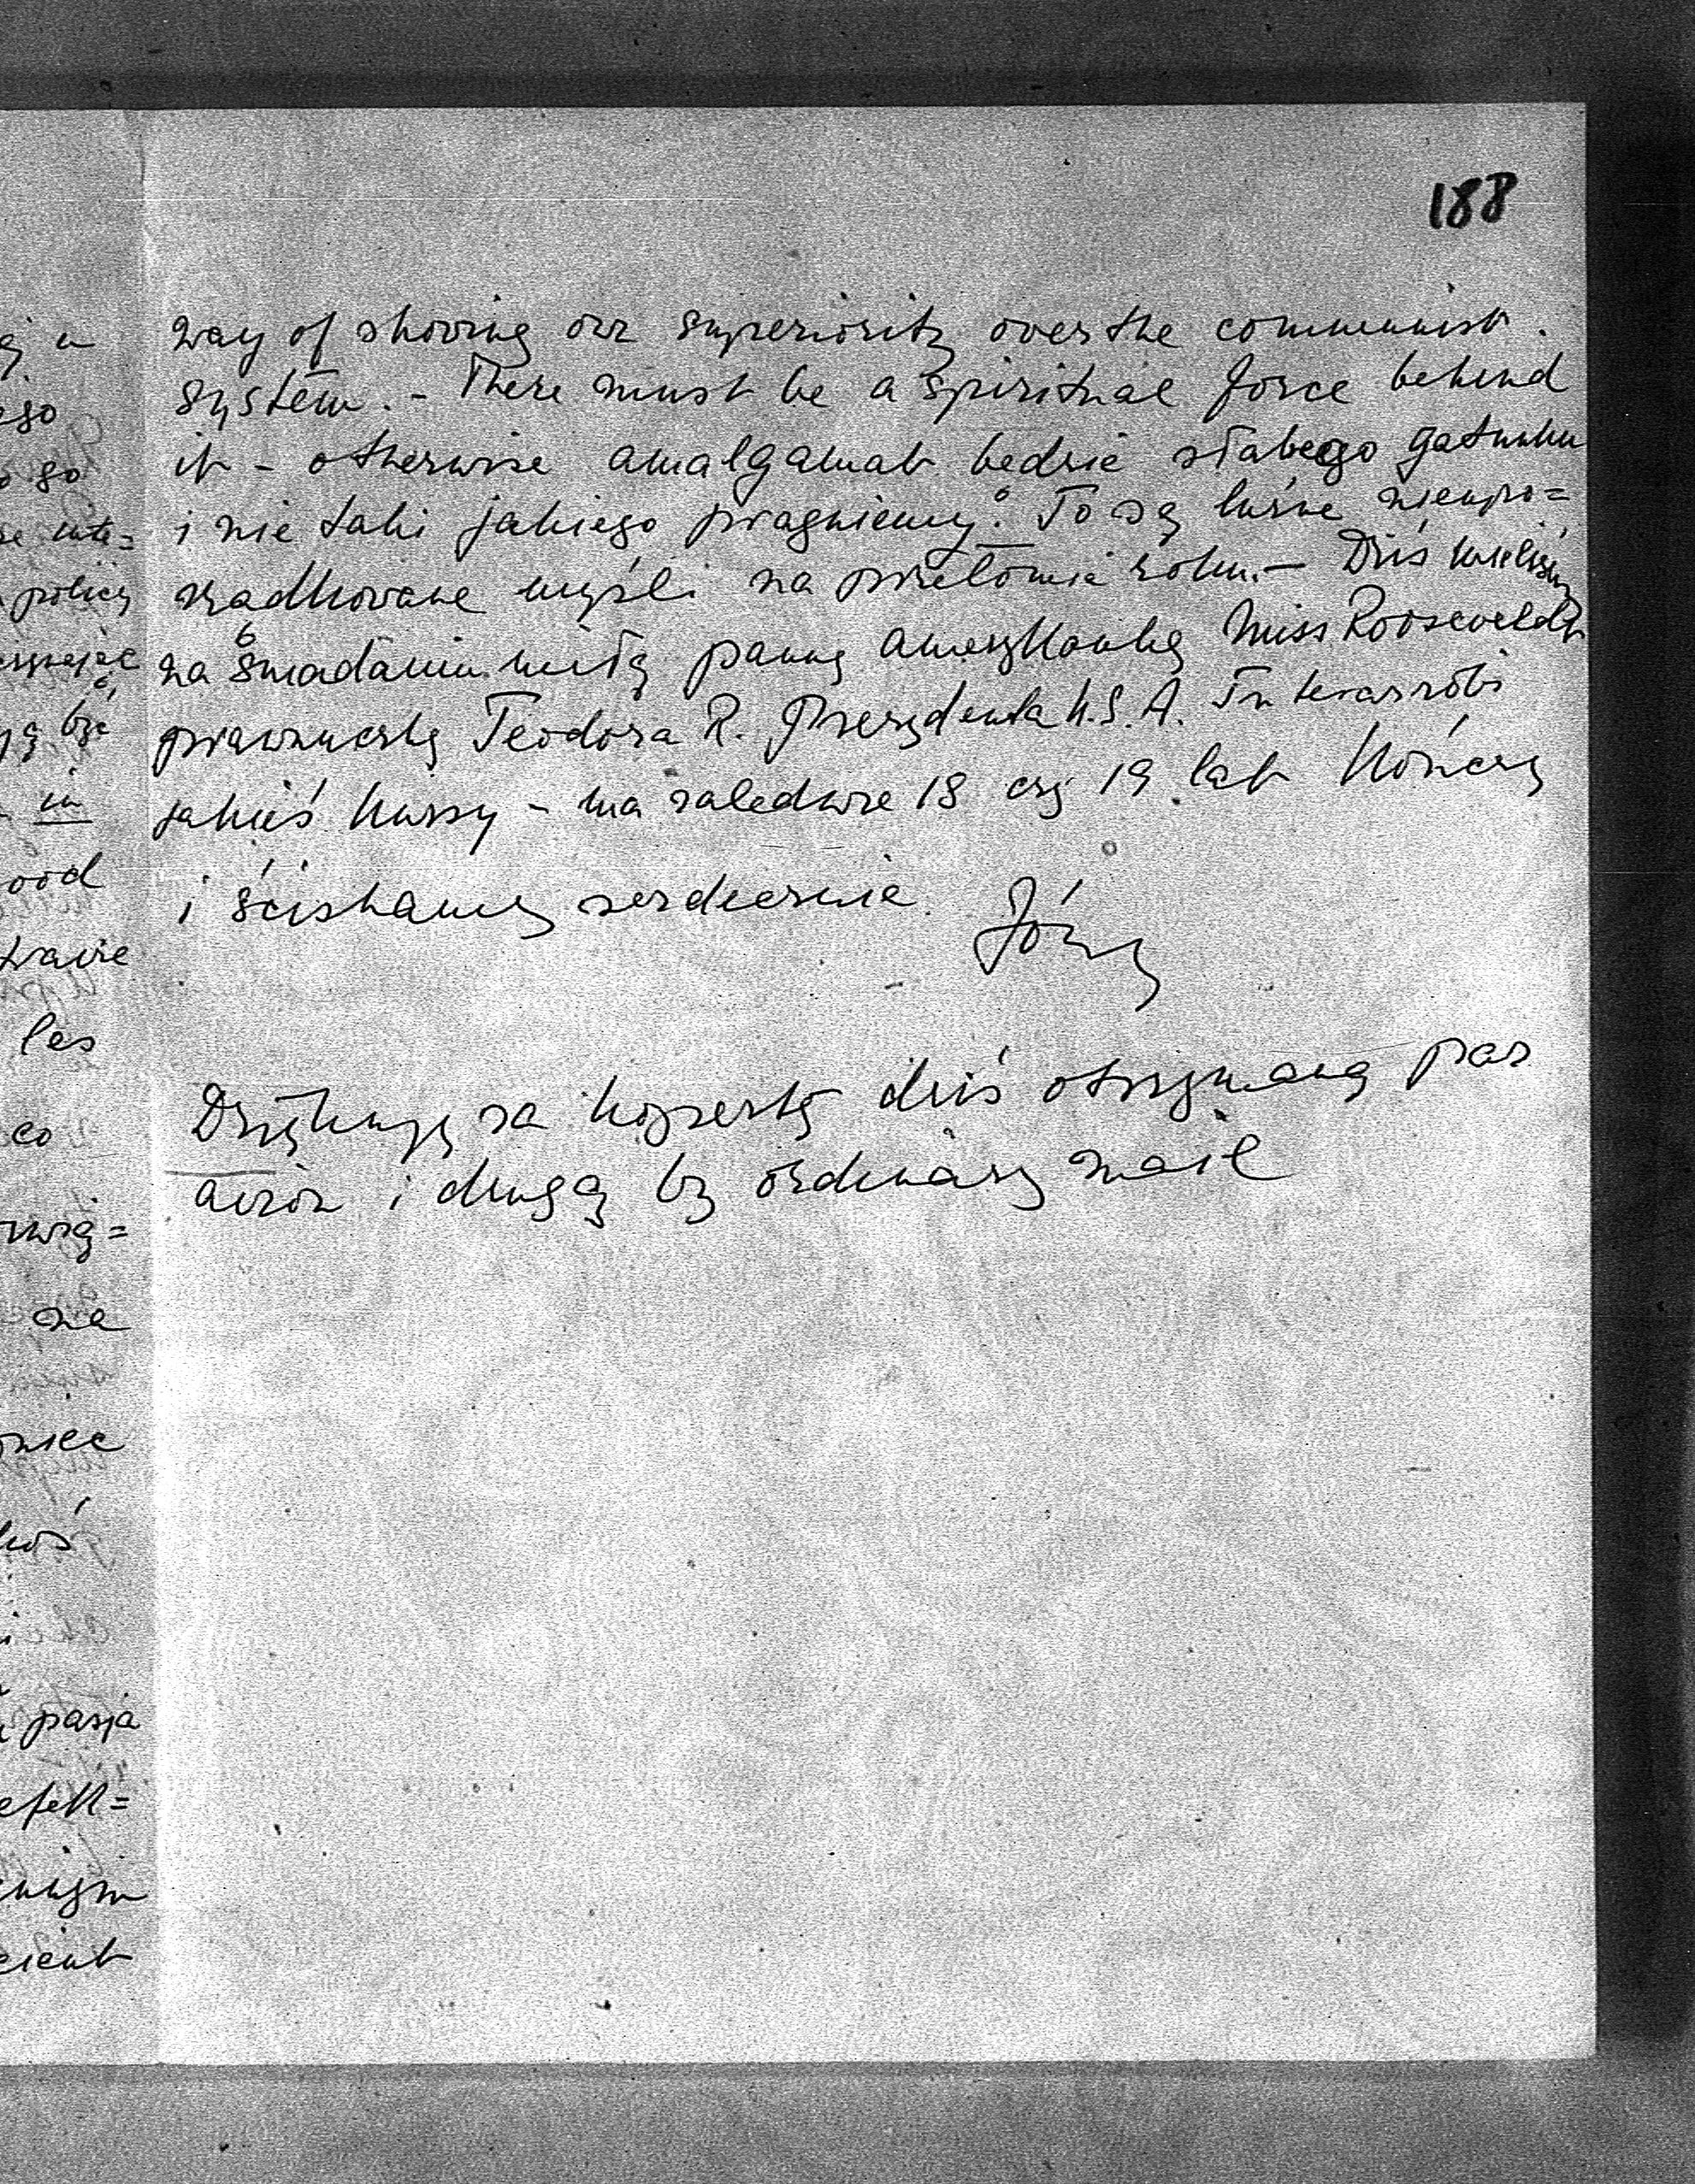 188
way of shoving our superiority over the communist.
system. - There must be a spiritual force behind
it - otherwise amalgamat będzie słabego gatunku
i nie taki jakiego pragniemy. To są luźne nieupo=
rządkowane myśli na przełomie roku. - Dziś mieliśmy
na śniadaniu miłą pannę amerykankę Miss Rooseveldt
prawnuczkę Teodora R. Prezydenta U.S.A. Tu teraz robi
jakieś kursy - ma zaledwie 18 czy 19 lat Kończę
i ściskamy serdecznie.
Józ
Dziękuję za kopertę dziś otrzymaną par
avion i drugą by ordinary mail
go
policy
być
in
ood
les
co
na
pasja